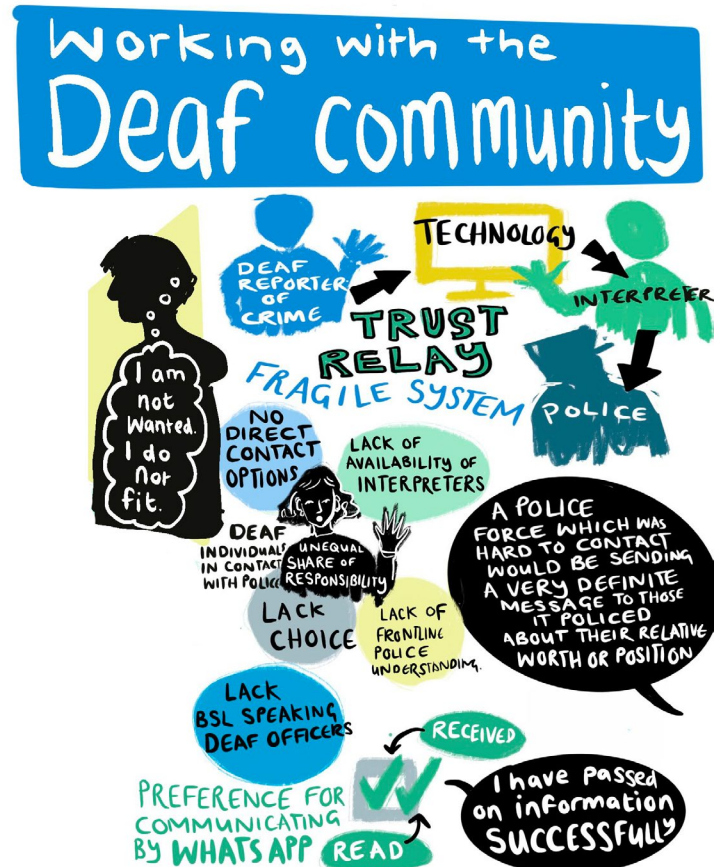 Working with the
Deaf community
DEAF
REPORTER
OF
CRIME
TECHNOLOGY
INTERPRETER
TRUST
RELAY
FRAGILE SYSTEM
POLICE
I am
not
wanted.
I do
not
fit.
NO
DIRECT
CONTACT
OPTIONS
LACK OF
AVAILABILITY OF
INTERPRETERS
DEAF
INDIVIDUALS
IN CONTACT
WITH POLICE
UNEQUAL
SHARE OF
RESPONSIBILITY
LACK
CHOICE
LACK OF
FRONTLINE
POLICE
UNDERSTANDING.
A POLICE
FORCE WHICH WAS
HARD TO CONTACT
WOULD BE SENDING
A VERY DEFINITE
MESSAGE TO THOSE
IT POLICED
ABOUT THEIR RELATIVE
WORTH OR POSITION
LACK
BSL SPEAKING
DEAF OFFICERS
RECEIVED
PREFERENCE FOR
COMMUNICATING
BY WHATS APP
READ
I have passed
on information
SUCCESSFULLY